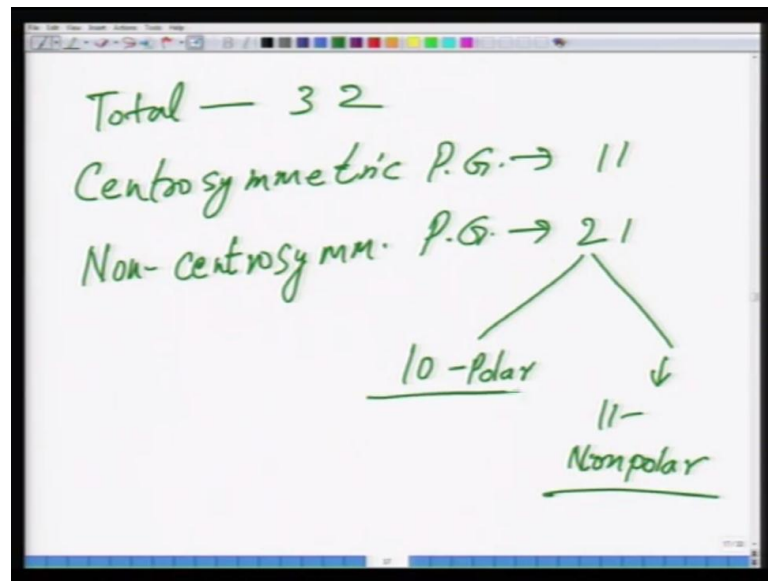 File Edit View Insert Actions Tools Help
Total — 32
Centrosymmetric P.G. → 11
Non-centrosymm. P.G. → 21
10 - Polar
↓
11 -
Nonpolar